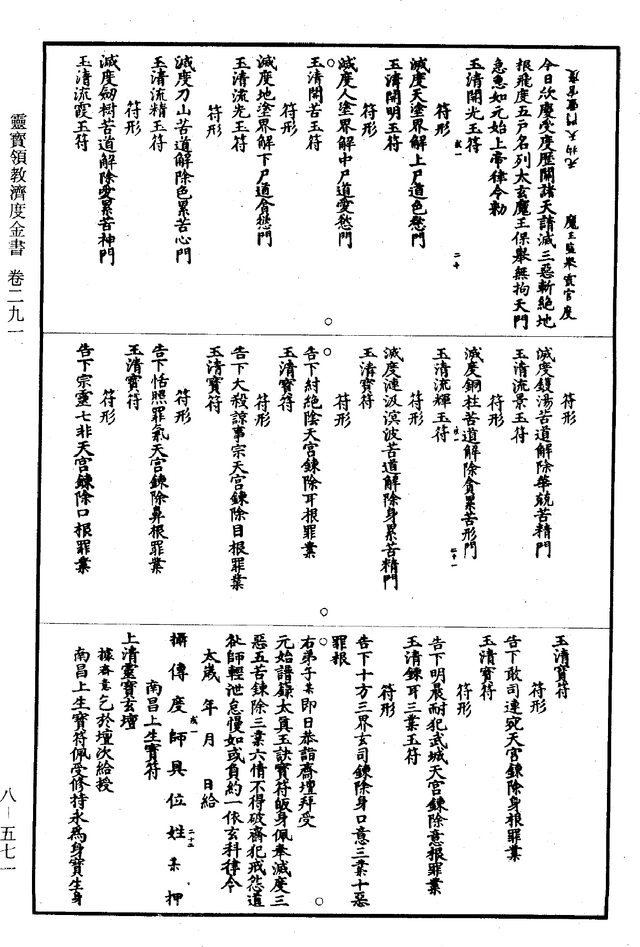 靈寶領教濟度金書 卷二九一
元始天門靈官度 魔王監舉靈官度
今日汝慶受度歷關諸天請滅三惡斬絕地
根飛度五戶名列太玄魔王保舉無拘天門
急急如元始上帝律令勅
玉清開光玉符
符形
滅度天塗界解上尸道色慾門
玉清開明玉符
符形
滅度人塗界解中尸道愛慾門
玉清開苦玉符
符形
滅度地塗界解下尸道貪慾門
玉清流光玉符
符形
滅度刀山苦道解除色累苦心門
玉清流精玉符
符形
滅度劒樹苦道解除愛累苦神門
玉清流霞玉符
符形
滅度鑊湯苦道解除華競苦精門
玉清流景玉符
符形
滅度銅柱苦道解除貪累苦形門
玉清流輝玉符
符形
滅度漣汲溟波苦道解除身累苦精門
玉清寶符
符形
告下紂絕陰天宮鍊除耳根罪業
玉清寶符
符形
告下大殺諒事宗天宮鍊除目根罪業
玉清寶符
符形
告下恬照罪氣天宮鍊除鼻根罪業
玉清寶符
符形
告下宗靈七非天宮鍊除口根罪業
玉清寶符
符形
告下敢司連宛天宮鍊除身根罪業
玉清寶符
符形
告下明晨耐犯武城天宮鍊除意根罪業
玉清鍊耳三業玉符
符形
告下十方三界玄司鍊除身口意三業十惡
罪根
右弟子某即日恭詣齋壇拜受
元始譜籙太真玉訣寶符皈身佩奉滅度三
惡五苦鍊除三業六情不得破齋犯戒怨道
咎師輕泄怠慢如或負約一依玄科律令
太歲 年 月 日給
攝傳度師具位姓某押
南昌上生寶符
上清靈寶玄壇
據齋意乞於壇次給授
南昌上生寶符佩受修持永爲身寶生身
八－五七一